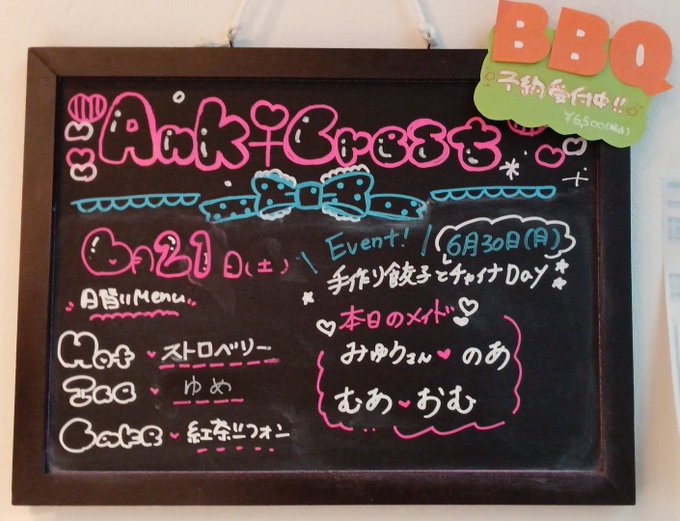 BBQ
予約受付中!!
¥6,500(税込)
Ank♀Crest
6月21日(土)
日替いMenu
Hot ♥ ストロベリー
Ice ♥ ゆめ
Cake ♥ 紅茶シフォン
\ Event! /
6月30日(月)
手作り餃子とチャイナDay
本日のメイド
みゅうさん ♥ のあ
むあ ♥ おむ